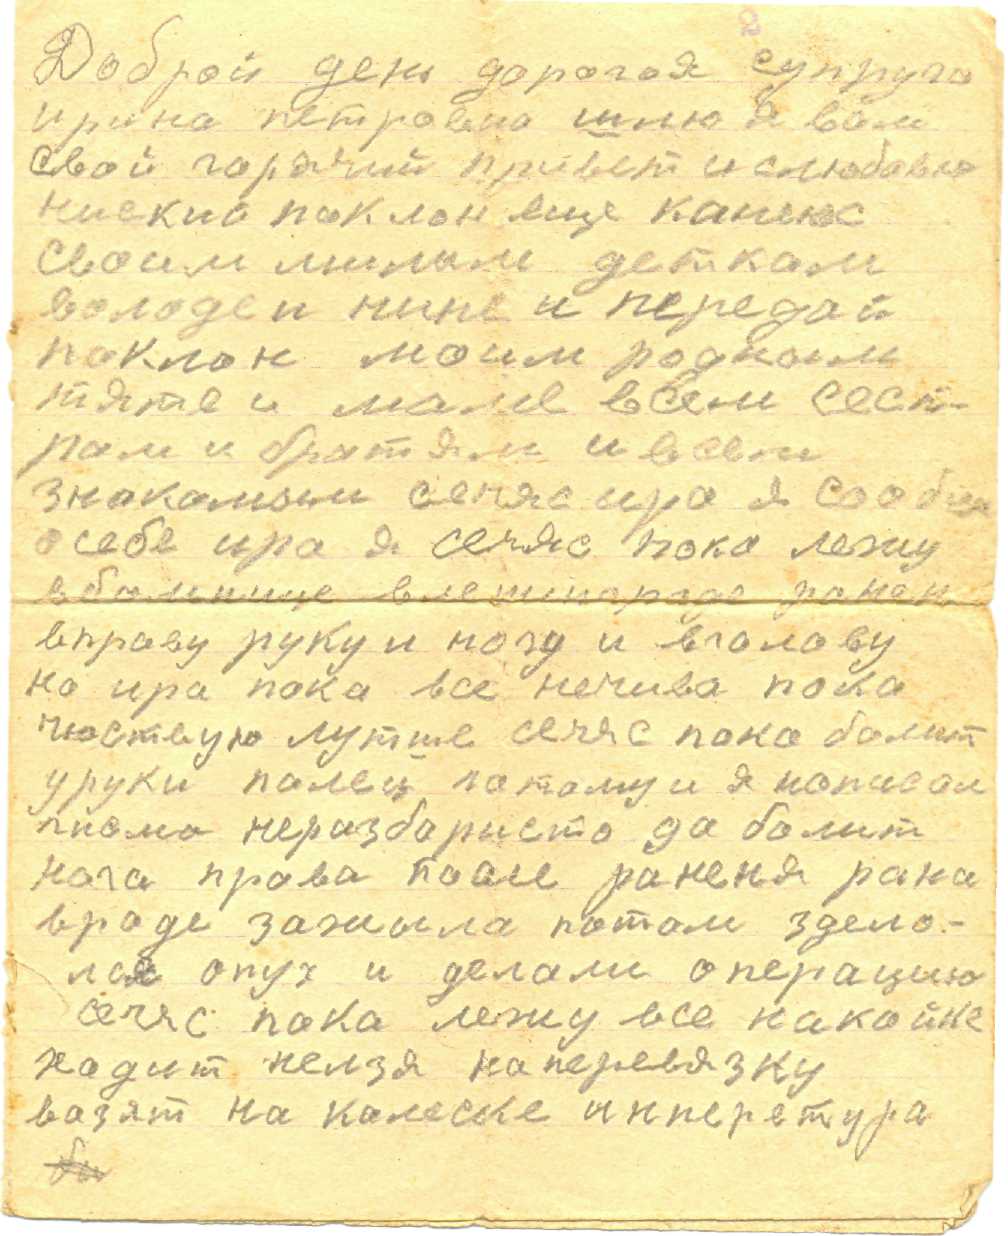 2
Доброй день дорогая супруга
ирина петровна шлю я вам
свой горячий привет и слюбовю
ниский поклон еще
своим милым деткам
володе и нине и передай
поклон моим родным
тяте и маме всем сест-
рам и братям и всем
знакомым сечяс ира я сообщаю
о себе ира я сечяс пока лежу
вбольнице вленинграде ранен
вправу руку и ногу и вголову
но ира пока все нечиво пока
чюствую лутше сечяс пока болит
уруки палец потому и я написал
писмо неразбористо да болит
нога права после раненя рана
вроде зажыла потом здело-
лся опух и делали операцию
сечяс пока лежу все накойке
ходит нелзя наперевязку
возят на колеске инперетура